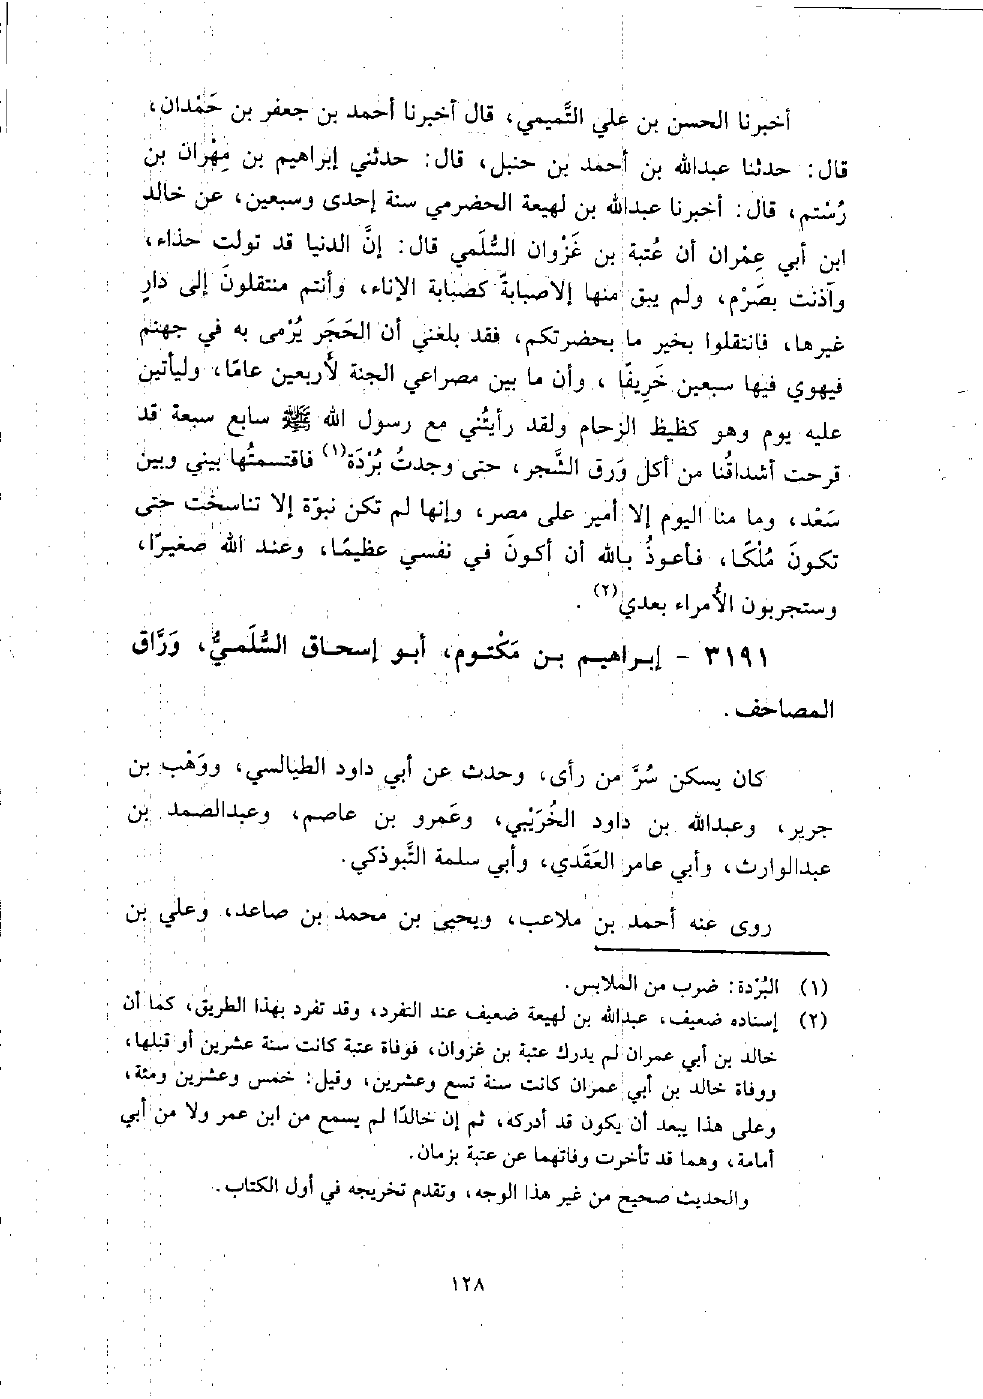 أخبرنا الحسن بن علي التَّميمي، قال أخبرنا أحمد بن جعفر بن حَمْدان،
قال: حدثنا عبدالله بن أحمد بن حنبل، قال: حدثني إبراهيم بن مِهْران بن
رُسْتم، قال: أخبرنا عبدالله بن لهيعة الحضرمي سنة إحدى وسبعين، عن خالد
ابن أبي عِمْران أن عُتبة بن غَزْوان السُّلَمي قال: إنَّ الدنيا قد تولت حذاء،
وآذنت بصَرْم، ولم يبق منها إلاصبابةً كصبابة الإناء، وأنتم منتقلونَ إلى دارٍ
غيرها، فانتقلوا بخير ما بحضرتكم، فقد بلغني أن الحَجَر يُرْمى به في جهنم
فيهوي فيها سبعين خَريفًا ، وأن ما بين مصراعي الجنة لأربعين عامًا، وليأتين
عليه يوم وهو كظيظ الزحام ولقد رأيتُني مع رسول الله ﷺ سابع سبعة قد
قرحت أشداقُنا من أكل وَرق الشَّجر، حتى وجدتُ بُرْدَة(١) فاقتسمتُها بيني وبين
سَعْد، وما منا اليوم إلا أمير على مصر، وإنها لم تكن نبوّة إلا تناسخت حتى
تكونَ مُلْكًا، فأعوذُ بالله أن أكونَ في نفسي عظيمًا، وعند الله صغيرًا،
وستجربون الأُمراء بعدي(٢) .
٣١٩١ - إبراهيم بن مَكْتوم، أبو إسحاق السُّلَميُّ، وَرَّاق
المصاحف.
كان يسكن سُرَّ من رأى، وحدث عن أبي داود الطيالسي، ووَهْب بن
جرير، وعبدالله بن داود الخُرَيْبي، وعَمرو بن عاصم، وعبدالصمد بن
عبدالوارث، وأبي عامر العَقَدي، وأبي سلمة التَّبوذكي.
روى عنه أحمد بن ملاعب، ويحيى بن محمد بن صاعد، وعلي بن
(١) البُرْدة: ضرب من الملابس.
(٢) إسناده ضعيف، عبدالله بن لهيعة ضعيف عند التفرد، وقد تفرد بهذا الطريق، كما أن
خالد بن أبي عمران لم يدرك عتبة بن غزوان، فوفاة عتبة كانت سنة عشرين أو قبلها،
ووفاة خالد بن أبي عمران كانت سنة تسع وعشرين، وقيل: خمس وعشرين ومئة،
وعلى هذا يبعد أن يكون قد أدركه، ثم إن خالدًا لم يسمع من ابن عمر ولا من أبي
أمامة، وهما قد تأخرت وفاتهما عن عتبة بزمان.
والحديث صحيح من غير هذا الوجه، وتقدم تخريجه في أول الكتاب.
١٢٨